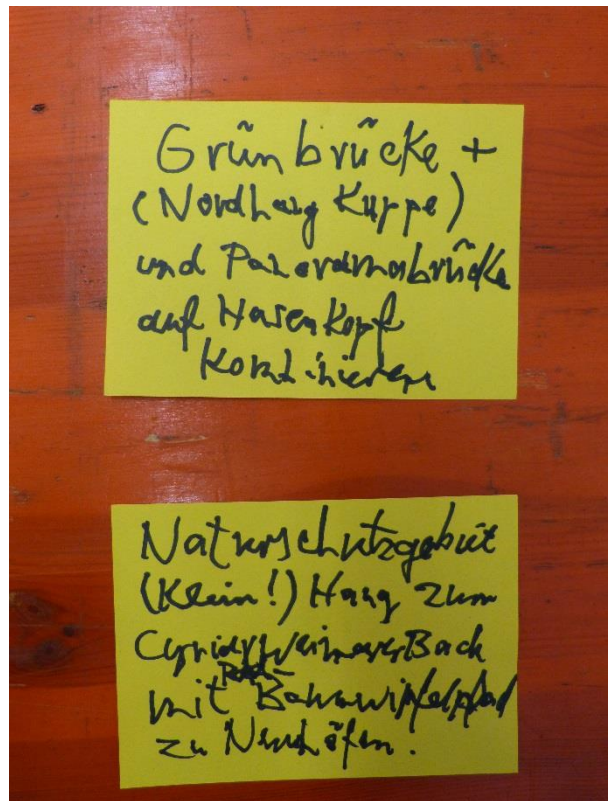 Grünbrücke +
(Nordhang Kuppe)
und Panoramabrücke
auf Hasenkopf
kombinieren
Naturschutzgebiet
(Klein!) Hang zum
Cyriaxweimarer Bach
mit Baumwipfelpfad
zu Neuhöfen.